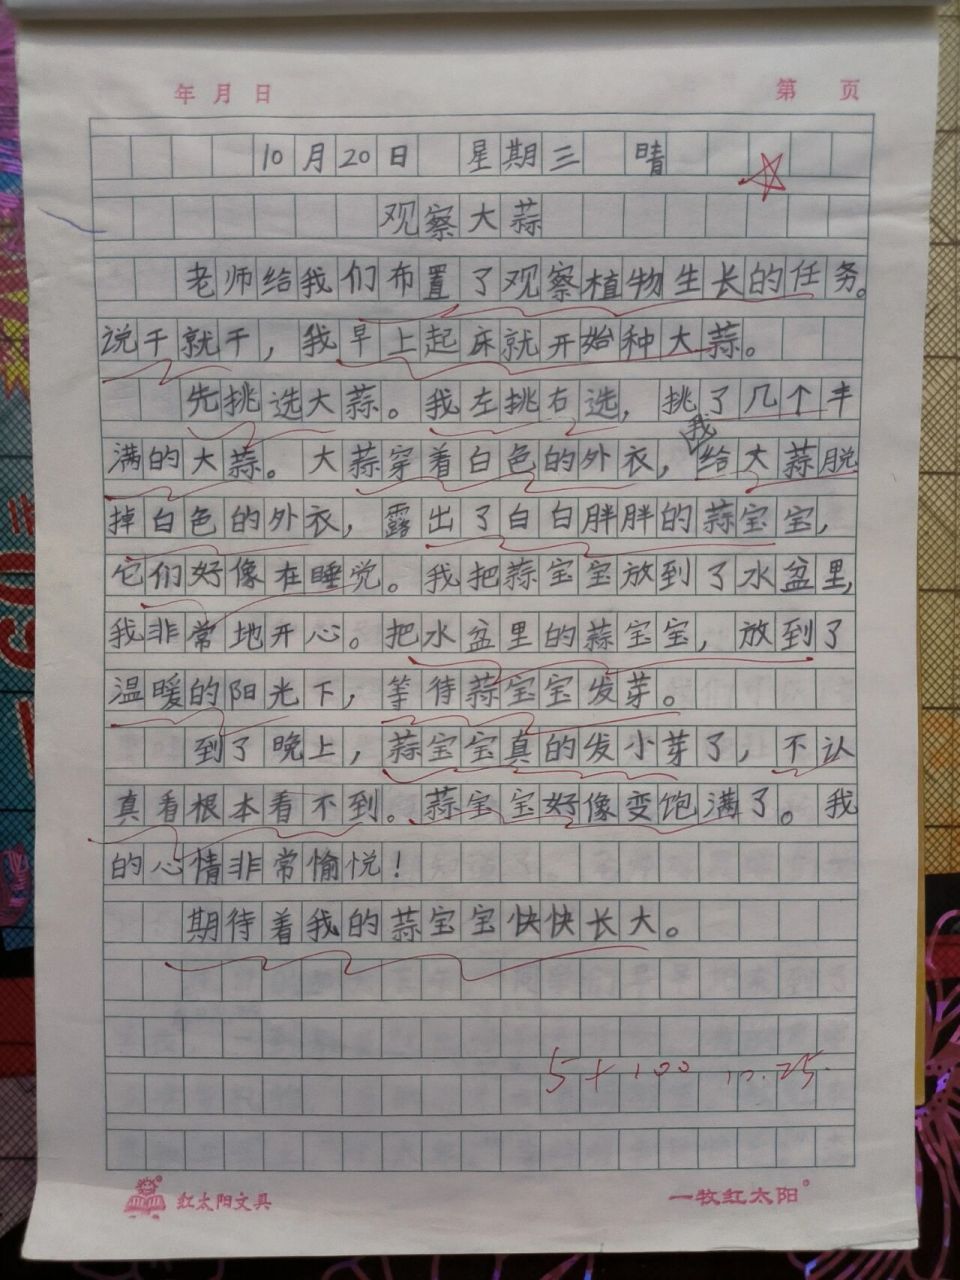 年 月 日 第 页
10月20日 星期三 晴
观察大蒜
老师给我们布置了观察植物生长的任务。
说干就干，我早上起床就开始种大蒜。
先挑选大蒜。我左挑右选，挑了几个丰
满的大蒜。大蒜穿着白色的外衣，我给大蒜脱
掉白色的外衣，露出了白白胖胖的蒜宝宝，
它们好像在睡觉。我把蒜宝宝放到了水盆里，
我非常地开心。把水盆里的蒜宝宝，放到了
温暖的阳光下，等待蒜宝宝发芽。
到了晚上，蒜宝宝真的发小芽了，不认
真看根本看不到。蒜宝宝好像变饱满了。我
的心情非常愉悦！
期待着我的蒜宝宝快快长大。
5+100 10.25.
红太阳文具 一牧红太阳